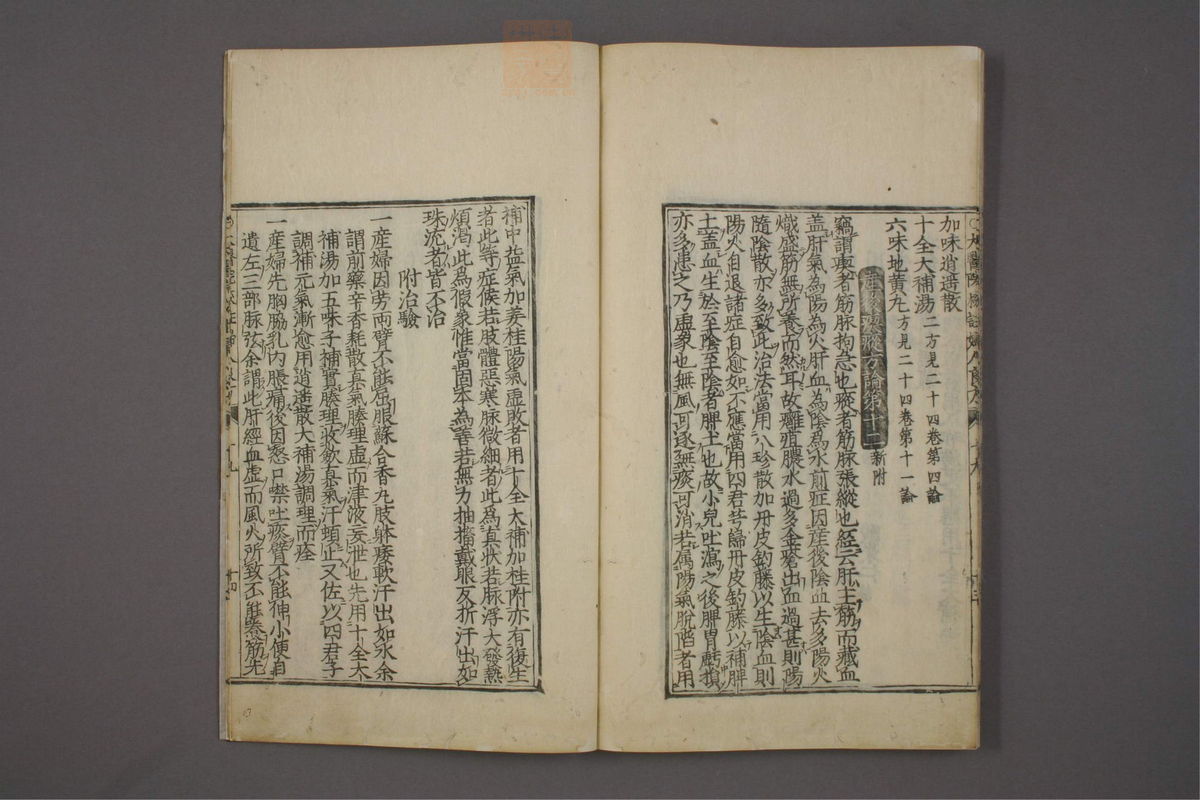 加味逍遥散
十全大補湯 二方見二十四卷第四論
六味地黄丸 方見二十四卷第十一論
産後瘈瘲方論第十二 新附
竊謂瘈者筋脉拘急也瘲者筋脉張縱也經云肝主筋而藏血
盖肝氣為陽為火肝血為陰為水前症因産後陰血去多陽火
熾盛筋無所養而然耳故癰疽膿水過多金瘡出血過甚則陽
隨陰散亦多致此治法當用八珍散加丹皮鈎藤以生陰血則
陽火自退諸症自愈如不應當用四君芎歸丹皮鈎藤以補脾
土盖血生於至陰至陰者脾土也故小兒吐瀉之後脾胃虧損
亦多患之乃虚象也無風可逐無痰可消若属陽氣脫陷者用
補中益氣加姜桂陽氣虚敗者用十全大補加桂附亦有復生
者此等症候若肢體惡寒脉微細者此為真状若脉浮大發熱
煩渴此為假象惟當固本為善若無力抽搐戴眼反折汗出如
珠流者皆不治
附治驗
一産婦因労两臂不能屈服蘇合香丸肢躰痿軟汗出如水余
謂前藥辛香耗散真氣腠理虚而津液妄泄也先用十全大
補湯加五味子補實腠理收歛真氣汗頓止又佐以四君子
調補元氣漸愈用逍遥散大補湯調理而痊
一産婦先胸脇乳内脹痛後因怒口噤吐痰臂不能伸小便自
遺左三部脉弦余謂此肝經血虚而風火所致不能養筋先